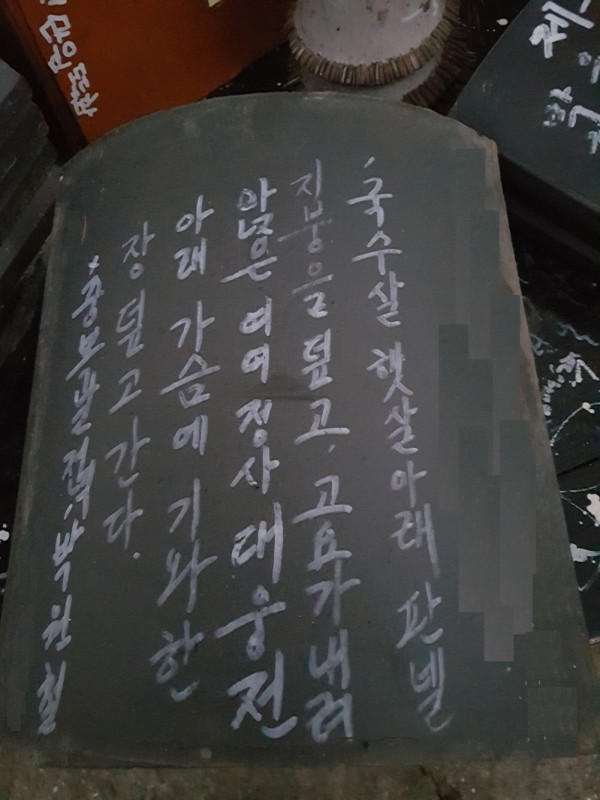 국수살 햇살아래 판넬
지붕을 덮고, 고요가 내려
앉은 여여정사 대웅전
아래 가슴에 기와 한
장 덮고 간다.
박원철